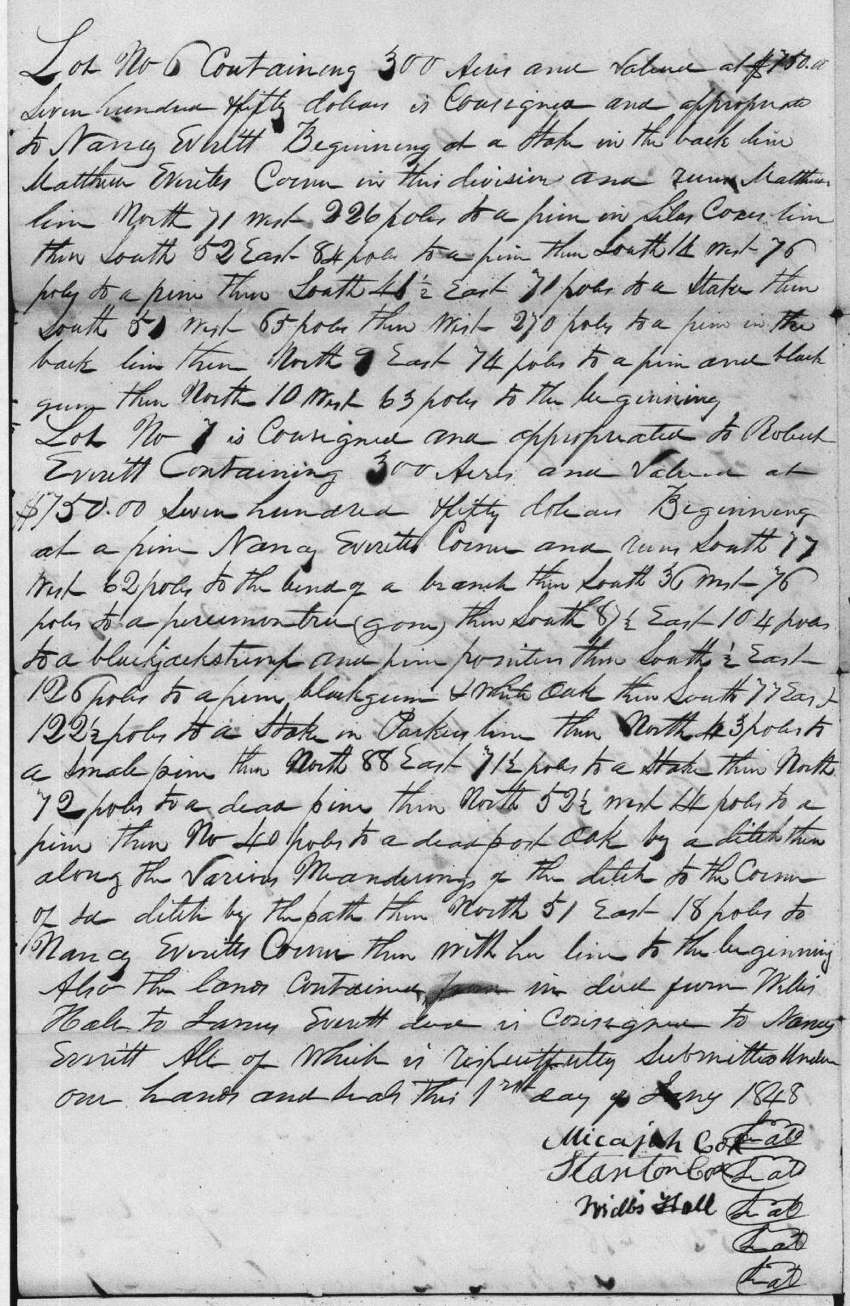 Lot No 6 Containing 300 Acres and Valued at $750.00
Seven hundred & fifty dolears is Consigned and appropriate
to Nancy Everitt Beginning at a Stake in the back line
Matthew Everitts Corner in this division and runs Matthew
line North 71 West 226 poles to a pine in Silas Coxes line
then South 52 East 84 poles to a pine then South 14 West 76
poles to a pine then South 41 ½ East 71 poles to a Stake then
South 51 West 65 poles then West 270 poles to a pine in the
back line then North 9 East 74 poles to a pine and black
gum then North 10 West 63 poles to the beginning
Lot No 7 is Consigned and appropriated to Robert
Everitt Containing 300 Acres and Valued at
$750.00 Seven hundred & fifty dolears Beginning
at a pine Nancy Everitts Corner and runs South 77
West 62 poles to the bend of a branch then South 36 West 76
poles to a persimon tree (gone) then South 8½ East 104 poles
to a blackjack stump and pine pointers then South ½ East
126 poles to a pine blackgum & White Oak then South 77 East
122½ poles to a Stake in Parkers line then North 43 poles to
a small pine then North 88 East 71½ poles to a Stake then North
72 poles to a dead pine then North 52½ West 14 poles to a
pine then No 40 poles to a dead post Oak by a ditch then
along the Various Meanderings of the ditch to the Corner
of sd ditch by the path then North 51 East 18 poles to
Nancy Everitts Corner then with her line to the beginning
Also the lands Contained in deed from Willis
Hall to James Everitt decd is Consigned to Nancy
Everitt All of Which is respectfuley Submitted Under
our hands and Seals this 1rst day of Jany 1848
Micajah Cox Seal
Stanton Cox Seal
Willis Hall Seal
Seal
Seal